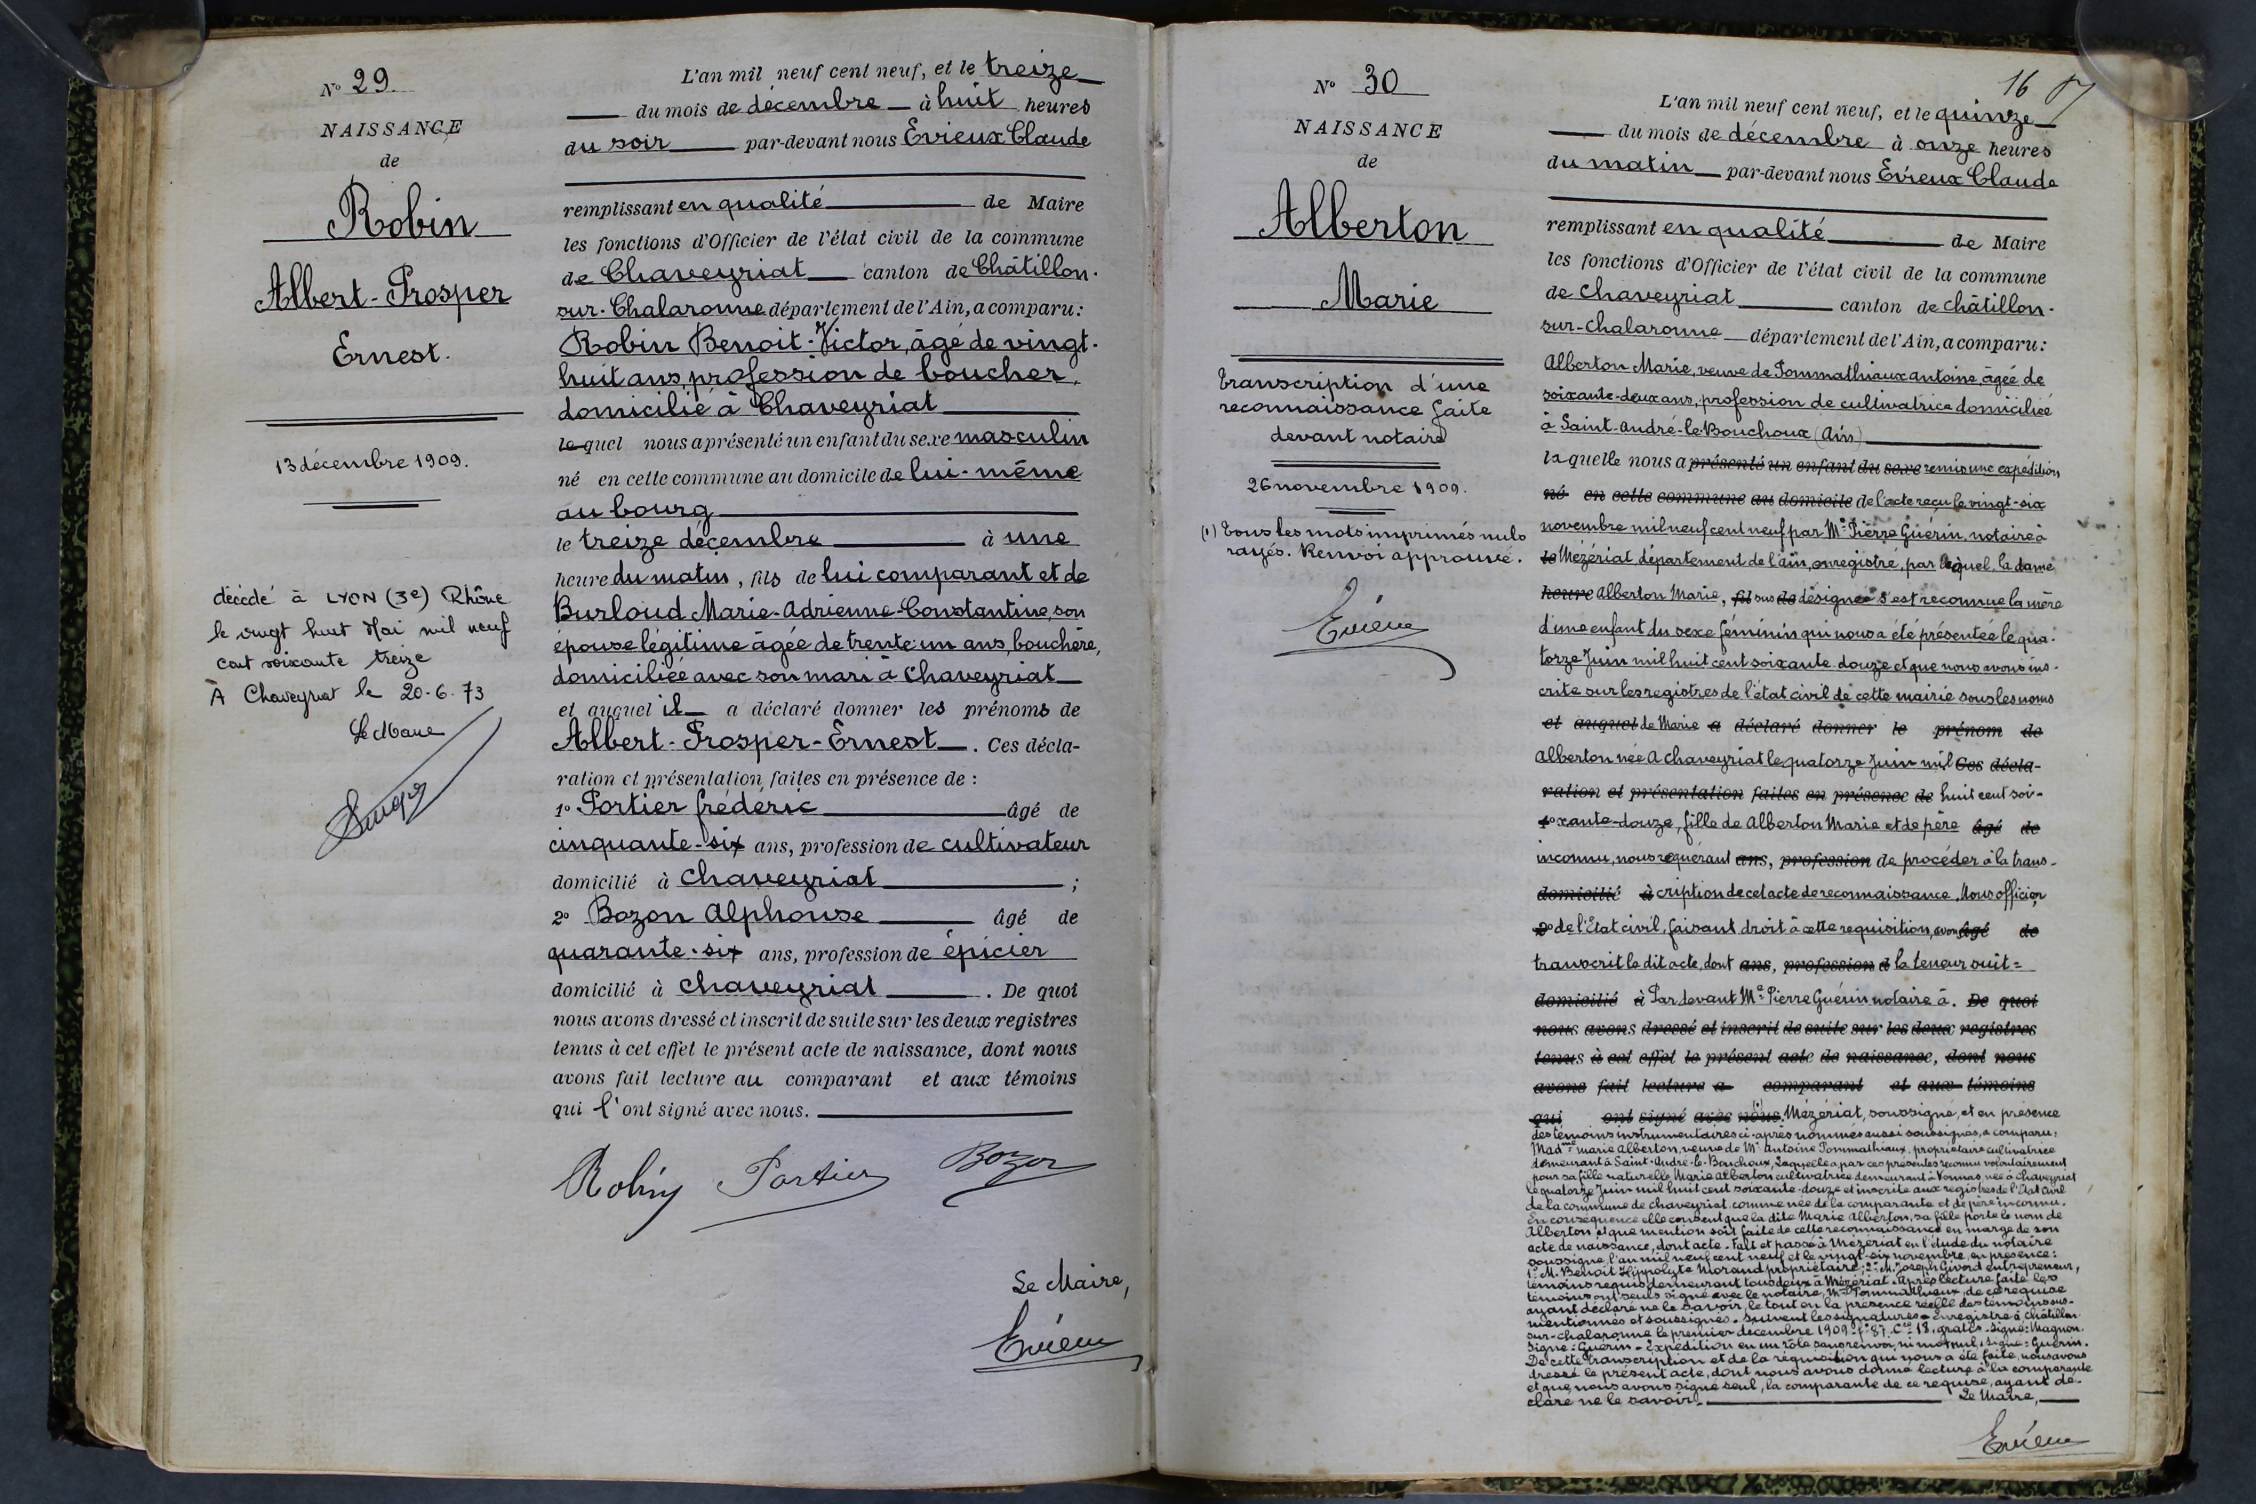 N° 29.
NAISSANCE
de
Robin
Albert-Prosper
Ernest.
13 décembre 1909.
décédé à LYON (3e) Rhône
le vingt huit Mai mil neuf
cent soixante treize
A Chaveyriat le 20-6-73
Le Maire
L'an mil neuf cent neuf, et le treize
du mois de décembre à huit heures
du soir par-devant nous Evieux Claude
remplissant en qualité de Maire
les fonctions d'Officier de l'état civil de la commune
de Chaveyriat canton de Châtillon-
sur-Chalaronne département de l'Ain, a comparu:
Robin Benoit-Victor, âgé de vingt-
huit ans, profession de boucher,
domicilié à Chaveyriat
lequel nous a présenté un enfant du sexe masculin
né en cette commune au domicile de lui-même
au bourg
le treize décembre à une
heure du matin, fils de lui comparant et de
Burloud Marie-Adrienne-Constantine, son
épouse légitime âgée de trente un ans, bouchère,
domiciliée avec son mari à Chaveyriat
et auquel il a déclaré donner les prénoms de
Albert-Prosper-Ernest. Ces décla-
ration et présentation faites en présence de :
1° Portier frédéric âgé de
cinquante-six ans, profession de cultivateur
domicilié à Chaveyriat ;
2° Bozon Alphonse âgé de
quarante-six ans, profession de épicier
domicilié à Chaveyriat. De quoi
nous avons dressé et inscrit de suite sur les deux registres
tenus à cet effet le présent acte de naissance, dont nous
avons fait lecture au comparant et aux témoins
qui l'ont signé avec nous.
Robin Portier Bozon
Le Maire,
Evieux
16
N° 30
NAISSANCE
de
Alberton
Marie
Transcription d'une
reconnaissance faite
devant notaire
26 novembre 1909.
(1) Tous les mots imprimés nuls
rayés. Renvoi approuvé.
Evieux
L'an mil neuf cent neuf, et le quinze
du mois de décembre à onze heures
du matin par-devant nous Evieux Claude
remplissant en qualité de Maire
les fonctions d'Officier de l'état civil de la commune
de Chaveyriat canton de Châtillon-
sur-Chalaronne département de l'Ain, a comparu:
Alberton Marie, veuve de Pommathiaux antoine, âgée de
soixante-deux ans, profession de cultivatrice domiciliée
à Saint-André-le-Bouchoux (Ain)
laquelle nous a présenté un enfant du sexe remis une expédition
né en cette commune au domicile de l'acte reçu le vingt-six
novembre mil neuf cent neuf par Me Pierre Guérin, notaire à
le Mézériat département de l'Ain, enregistré, par lequel, la dame
heure Alberton Marie, fil sus de désignée s'est reconnue la mère
d'une enfant du sexe féminin qui nous a été présentée le qua-
torze Juin mil huit cent soixante-douze et que nous avons ins-
crite sur les registres de l'état civil de cette mairie sous les noms
et auquel de Marie a déclaré donner le prénom de
Alberton née à Chaveyriat le quatorze Juin mil Ces décla-
ration et présentation faites en présence de huit cent soi-
1° xante-douze, fille de Alberton Marie et de père âgé de
inconnu, nous requérant ans, profession de procéder à la trans-
domicilié à cription de cet acte de reconnaissance. Nous officier
2° de l'Etat civil, faisant droit à cette requisition, avons âgé de
transcrit le dit acte, dont ans, profession d la teneur suit =
domicilié à Par devant Me Pierre Guérin notaire à. De quoi
nous avons dressé et inscrit de suite sur les deux registres
tenus à cet effet le présent acte de naissance, dont nous
avons fait lecture a comparant et aux témoins
qui ont signé avec nous. Mézériat, soussigné, et en présence
des témoins instrumentaires ci-après nommés aussi soussignés, a comparu:
Made marie Alberton, veuve de Mr Antoine Pommathiaux, propriétaire cultivatrice
demeurant à Saint-André-le-Bouchoux, Laquelle a par ces présentes reconnu volontairement
pour sa fille naturelle Marie Alberton cultivatrice demeurant à Vonnas, née à Chaveyriat
le quatorze Juin mil huit cent soixante-douze et inscrite aux registres de l'Etat civil
de la commune de Chaveyriat comme née de la comparante et de père inconnu.
En conséquence elle consent que la dite Marie Alberton, sa fille porte le nom de
Alberton et que mention soit faite de cette reconnaissance en marge de son
acte de naissance, dont acte. Fait et passé à Mézériat en l'étude du notaire
soussigné, l'an mil neuf cent neuf et le vingt-six novembre, en présence :
1° M. Benoit Hippolyte Morand propriétaire; 2° M. Joseph Givord entrepreneur,
témoins requis demeurant tous deux à Mézériat. Après lecture faite les
témoins ont seuls signé avec le notaire, Me Pommathiaux, de ce requise
ayant déclaré ne le savoir, le tout en la présence réelle des témoins sus-
mentionnés et soussignés. Suivent les signatures = Enregistré à Châtillon-
sur-Chalaronne le premier décembre 1909. f° 87, Ce 18, gratis. Signé: Magnon.
Signé: Guérin = Expédition en un rôle sans renvoi, ni mot nul. Signé: Guérin.
De cette transcription et de la réquisition qui nous a été faite, nous avons
dressé le présent acte, dont nous avons donné lecture à la comparante
et que nous avons signé seul, la comparante de ce requise, ayant dé-
claré ne le savoir. Le Maire,
Evieux